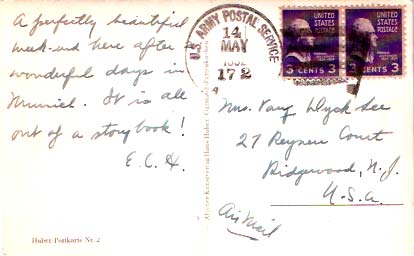 A perfectly beautiful
week-end here after
wonderful days in
Munich. It is all
out of a story book!
E.C.H.
Huber Postkarte Nr. 2
U.S. ARMY POSTAL SERVICE
14
MAY
1952
172
UNITED
STATES
POSTAGE
3 CENTS 3
UNITED
STATES
POSTAGE
3 CENTS 3
Mrs. Van Dyck
27 Court
Ridgewood, N.J.
U.S.A.
Air Mail